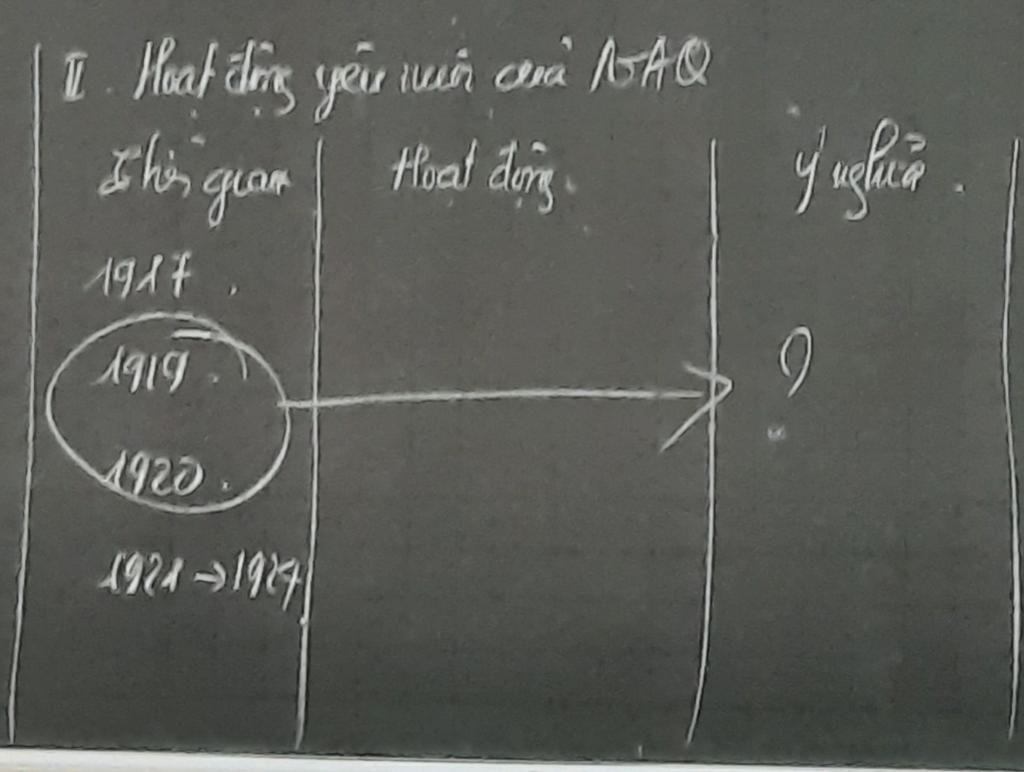 II. Hoạt động yêu nước của NAQ
Thời gian Hoạt động. Ý nghĩa.
1917.
1919. ?
1920.
1921 → 1924